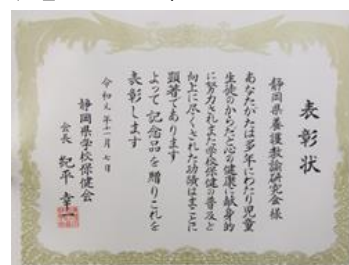 表彰状
静岡県養護教諭研究会様
あなたがたは多年にわたり児童
生徒のからだと心の健康に献身的
に努力されまた学校保健の普及と
向上に尽くされた功績はまことに
顕著であります
よって記念品を贈りこれを
表彰します
令和元年十一月七日
静岡県学校保健会
会長 紀平幸一